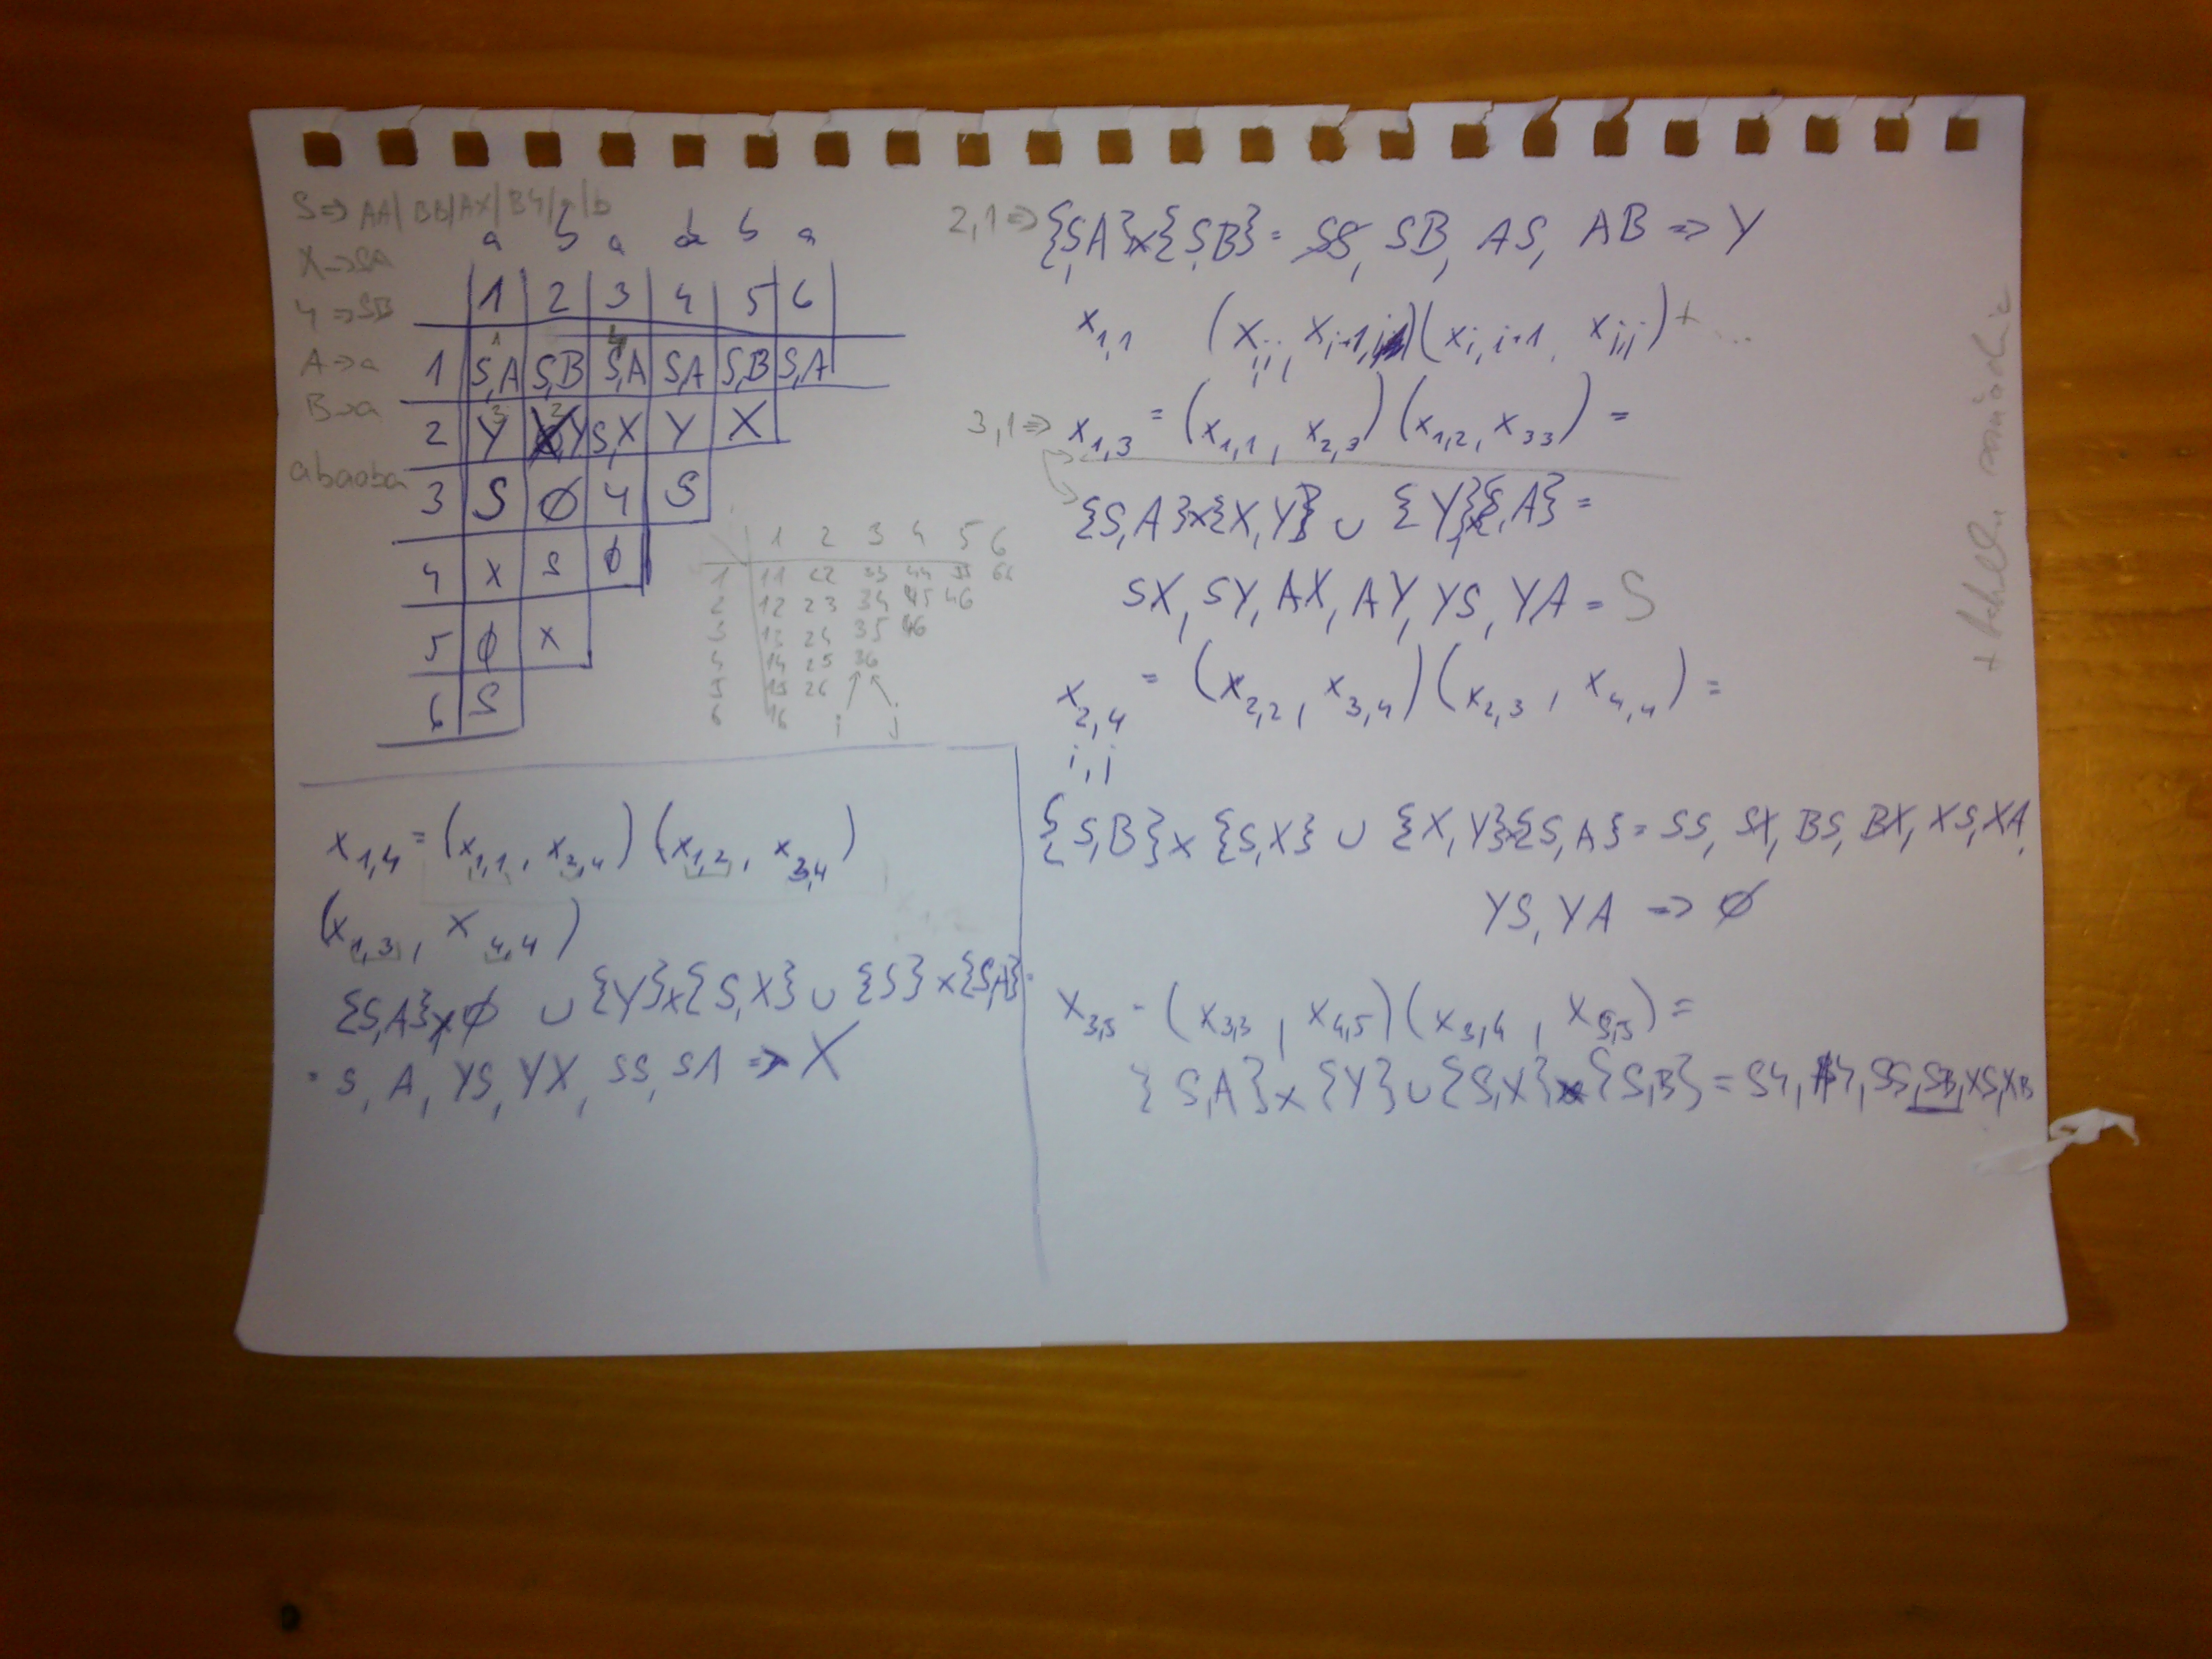 S => AA| BB|AX| B4|a|b
X -> SA
4 => SB
A -> a
B -> a
abaaba
a b a a b a
1 2 3 4 5 6
1 S,A S,B S,A S,A S,B S,A
2 Y X,Y S,X Y X
3 S ∅ 4 S
4 X S ∅
5 ∅ X
6 S
1 2 3 4 5 6
1 11 22 33 44 55 66
2 12 23 34 45 46
3 13 24 35 46
4 14 25 36
5 15 26
6 16
i j
x1,4 = (x1,1 , x2,4) (x1,2 , x3,4)
(x1,3 , x4,4)
{S,A} x ∅ ∪ {Y}x{S,X} ∪ {S} x {S,A} =
= S, A, YS, YX, SS, SA => X
2,1 => {S,A}x{S,B} = SS, SB, AS, AB => Y
x1,1 (xi,i , xi+1,j)(xi,i+1 , xi,j) + ...
3,1 => x1,3 = (x1,1 , x2,3) (x1,2 , x33) =
{S,A}x{X,Y} ∪ {Y}x{S,A} =
SX, SY, AX, AY, YS, YA = S
x2,4 = (x2,2 , x3,4) (x2,3 , x4,4) =
i,j
{S,B} x {S,X} ∪ {X,Y}x{S,A} = SS, SX, BS, BX, XS, XA,
YS, YA => ∅
x3,5 = (x3,3 , x4,5) (x3,4 , x5,5) =
{S,A} x {Y} ∪ {S,X} x {S,B} = S4, A4, SS, SB, XS, XB